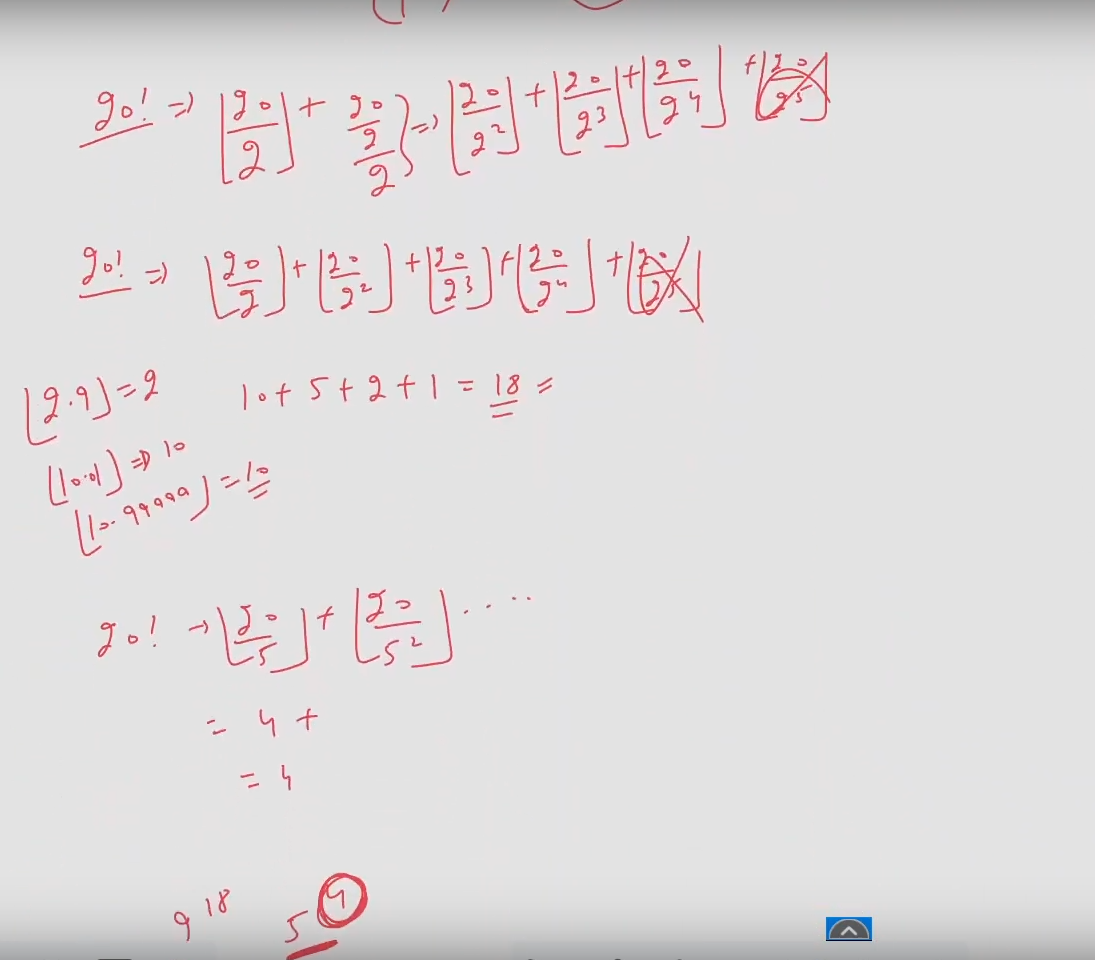 20! => ⌊20/2⌋ + 20/2/2 } => ⌊20/2²⌋ + ⌊20/2³⌋ + ⌊20/2⁴⌋ + ⌊20/2⁵⌋
20! => ⌊20/2⌋ + ⌊20/2²⌋ + ⌊20/2³⌋ + ⌊20/2⁴⌋ + ⌊20/2⁵⌋
⌊2.9⌋ = 2 10 + 5 + 2 + 1 = 18 =
⌊10.01⌋ => 10
⌊10.99999⌋ = 10
20! → ⌊20/5⌋ + ⌊20/5²⌋ ....
= 4 +
= 4
2¹⁸ 5⁴